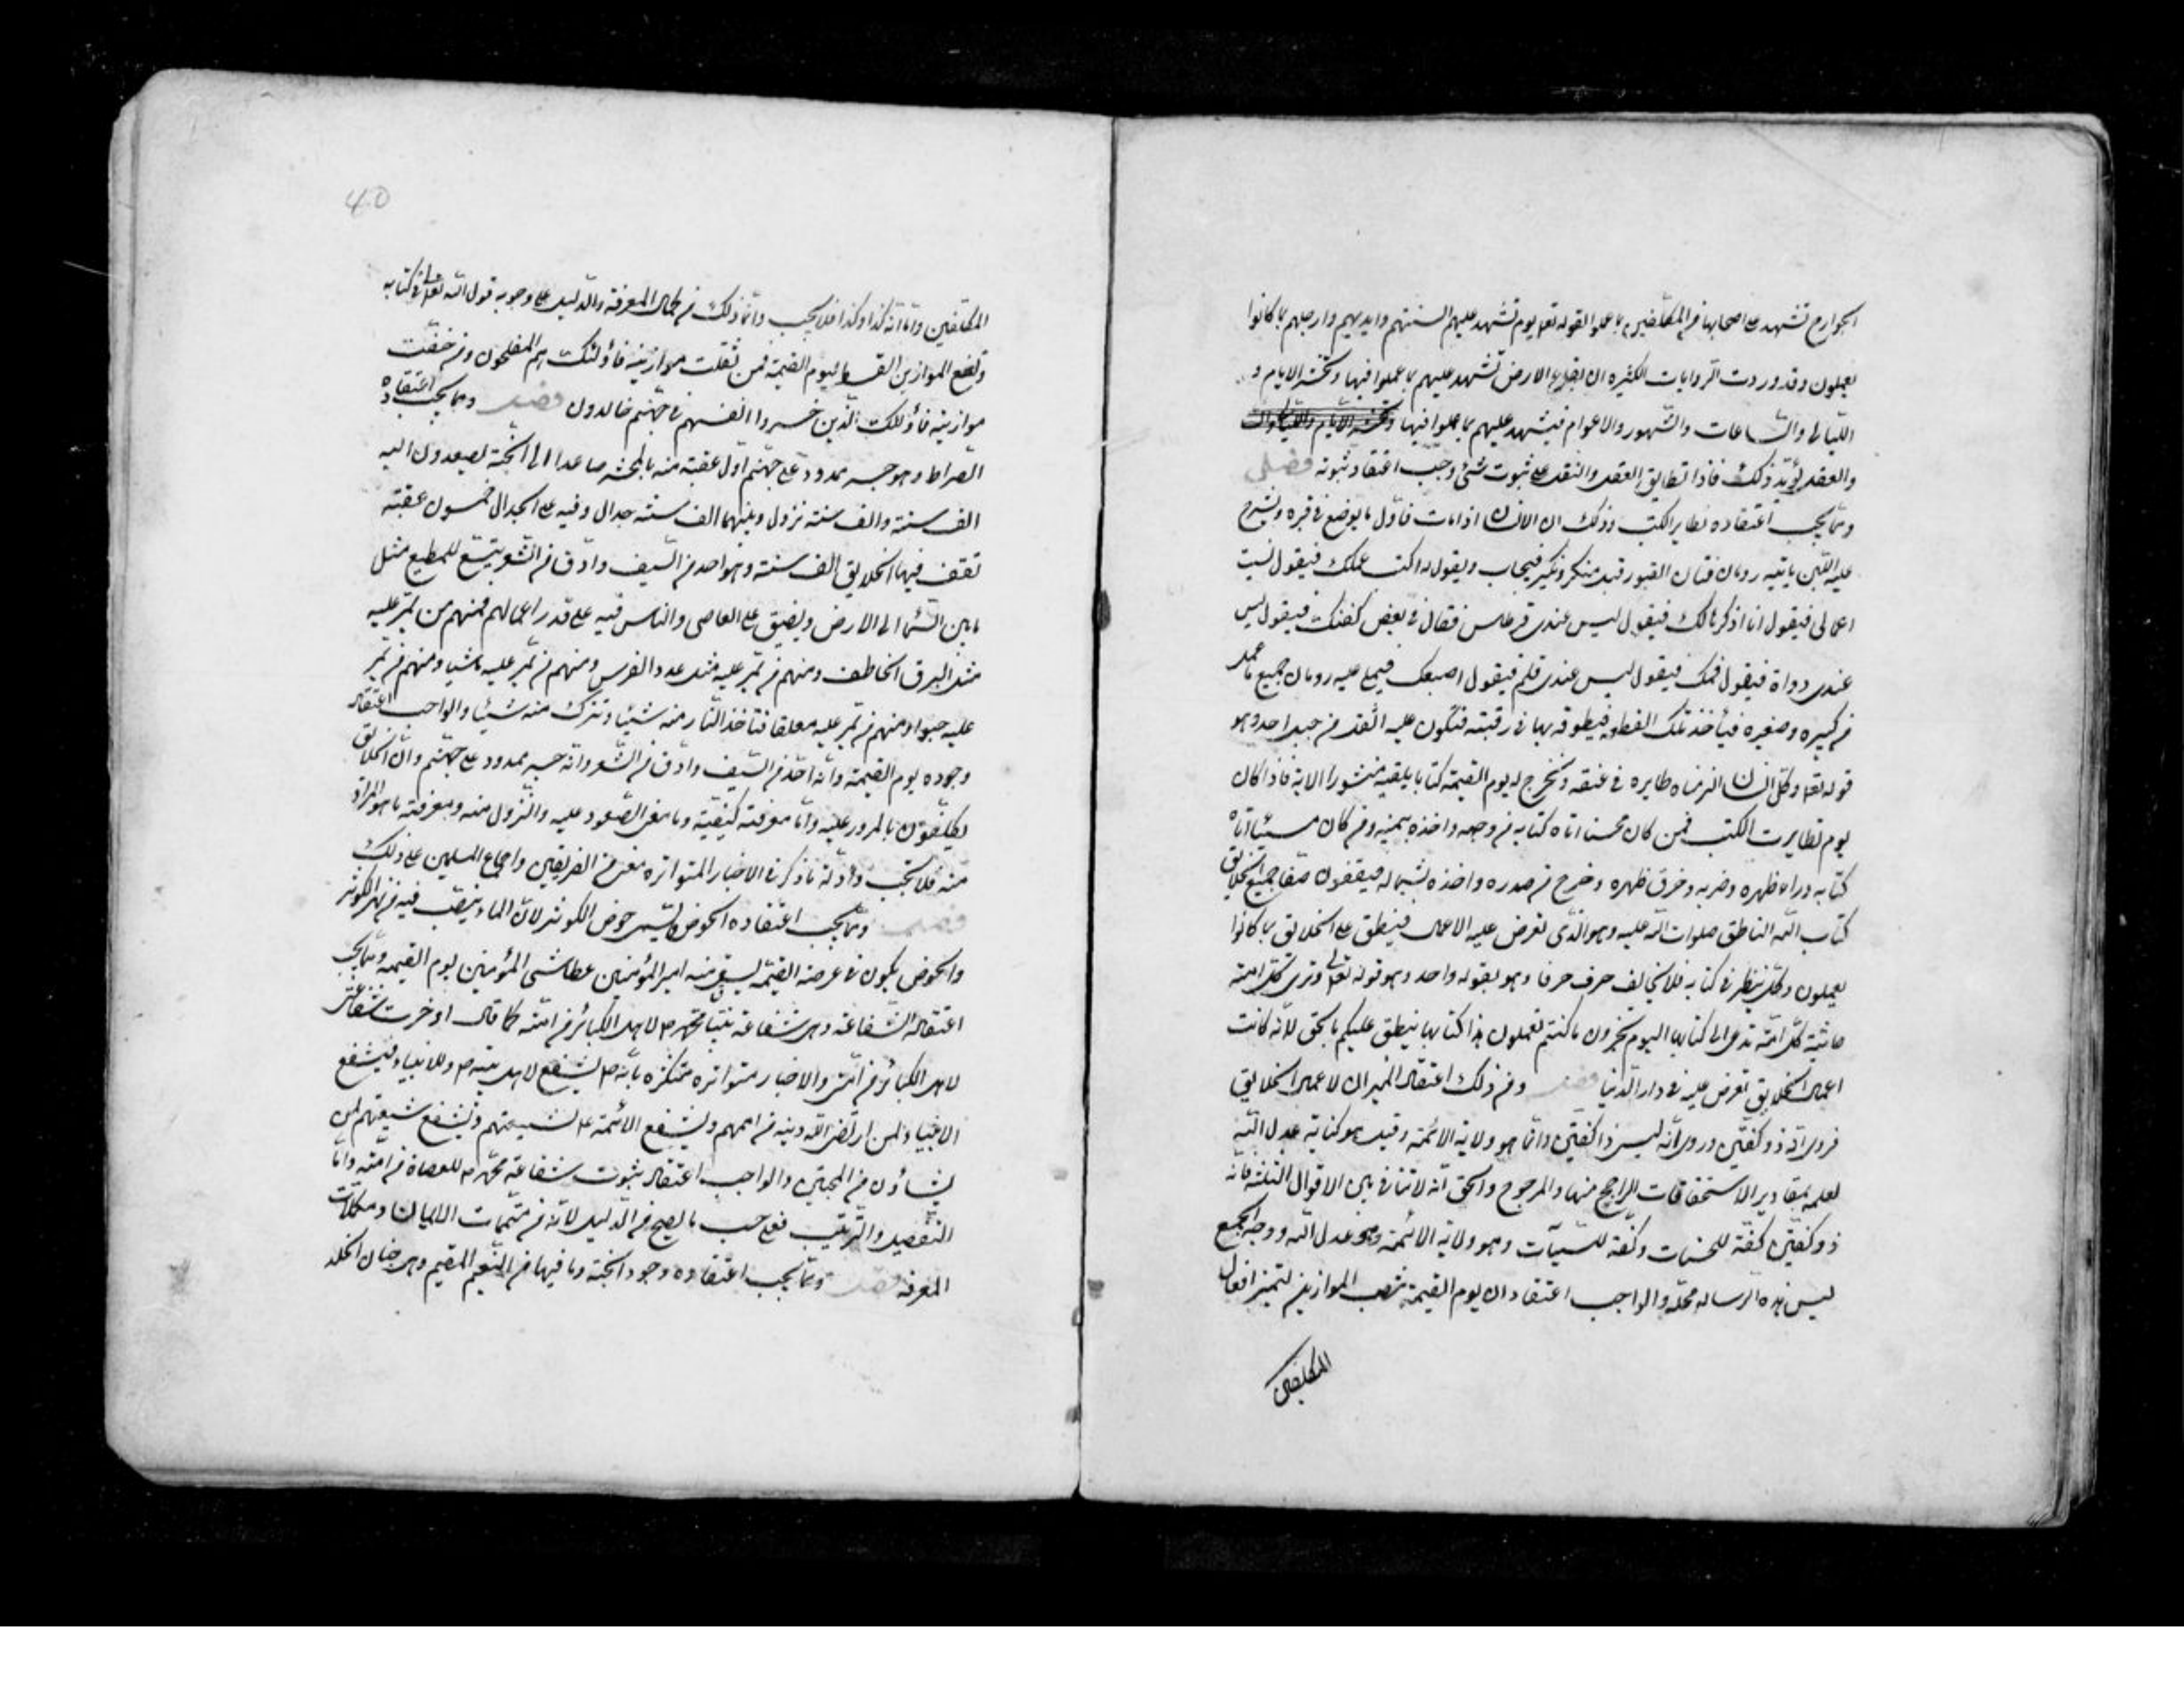 الجوارح تشهد على اصحابها من المكلفين بما عملوا لقوله تعالى يوم تشهد عليهم السنتهم وايديهم وارجلهم بما كانوا
يعملون وقد وردت الروايات الكثيرة ان بقاع الارض تشهد عليهم بما عملوا فيها وتحشر الايام و
الليالي والساعات والشهور والاعوام فيشهد عليهم بما عملوا فيها
والعقل يؤيد ذلك فاذا تطابق العقل والنقل على ثبوت شئ وجب اعتقاد ثبوته فصل
ومما يجب اعتقاده تطاير الكتب وذلك ان الانسان اذا مات فاول ما يوضع في قبره ويشرج
عليه اللبن ياتيه رومان فتان القبور قبل منكر ونكير فيحاسب ويقول له اكتب عملك فيقول نسيت
اعمالي فيقول انا اذكرها لك فيقول ليس عندي قرطاس فقال في بعض كفنك فيقول ليس
عندي دواة فيقول فمك فيقول ليس عندي قلم فيقول اصبعك فيملي عليه رومان جميع ما عمل
من كبيره وصغيره فيأخذ تلك القطعة فيطوقه بها في رقبته فتكون عليه اثقل من جبل احد وهو
قوله تعالى وكل انسان الزمناه طايره في عنقه ونخرج له يوم القيمة كتابا يلقيه منشورا الاية فاذا كان
يوم تطايرت الكتب فمن كان محسنا اتاه كتابه من وجهه واخذه بيمينه ومن كان مسيئا اتاه
كتابه وراء ظهره وضربه وخرق ظهره وخرج من صدره واخذه بشماله فيقفون صفا جميع الخلايق
كتاب الله الناطق صلوات الله عليه وهو الذي تعرض عليه الاعمال فينطق على الخلايق بما كانوا
يعملون وكل ينظر في كتابه فلا يخالف حرف حرفا وهو بقوله واحد وهو قوله تعالى وترى كل امة
جاثية كل امة تدعى الى كتابها اليوم تجزون ما كنتم تعملون هذا كتابنا ينطق عليكم بالحق لانه كانت
اعمال الخلايق تعرض عليه في دار الدنيا فصل ومن ذلك اعتقاد الميزان لاعمال الخلايق
فروي انه ذو كفتين وروي انه ليس ذا كفتين وانما هو ولاية الائمة وقيل هو كناية عدل الله
لعلمه بمقادير الاستحقاقات الراجح منها والمرجوح والحق انه لا تنافي بين الاقوال الثلثة فانه
ذو كفتين كفة للحسنات وكفة للسيآت وهو ولاية الائمة وهو عدل الله ووجه الجمع
ليس هذه الرسالة محله والواجب اعتقاد ان يوم القيمة تنصب الموازين لتميز افعال
المكلفين
40
المكلفين واما انه كذا وكذا فلا يجب وانما ذلك من كمال المعرفة والدليل على وجوبه قول الله تعالى في كتابه
ونضع الموازين القسط ليوم القيمة فمن ثقلت موازينه فأولئك هم المفلحون ومن خفت
موازينه فأولئك الذين خسروا انفسهم في جهنم خالدون فصل ومما يجب اعتقاده
الصراط وهو جسر ممدود على جهنم اول عقبة منه بالمحشر صاعدا الى الجنة يصعدون اليه
الف سنة والف سنة نزول وبينهما الف سنة حدال وفيه على الحدال خمسون عقبة
تقف فيها الخلايق الف سنة وهو احد من السيف وادق من الشعر يتسع للمطيع مثل
ما بين السماء الى الارض ويضيق على العاصي والناس فيه على قدر اعمالهم فمنهم من يمر عليه
مثل البرق الخاطف ومنهم من يمر عليه مثل عدو الفرس ومنهم من يمر عليه ماشيا ومنهم من يمر
عليه حبوا ومنهم من يمر عليه معلقا فتاخذ النار منه شيئا وتترك منه شيئا والواجب اعتقاد
وجوده يوم القيمة وانه احد من السيف وادق من الشعر وانه جسر ممدود على جهنم وان الخلايق
يكلفون بالمرور عليه واما معرفة كيفيته وما معنى الصعود عليه والنزول منه ومعرفة ما هو المراد
منه فلا تجب وأدلة ما ذكر في الاخبار المتواترة معنى من الفريقين واجماع المسلمين على ذلك
فصل ومما يجب اعتقاده الحوض ويسمى حوض الكوثر لان الماء ينصب فيه من نهر الكوثر
والحوض يكون في عرصة القيمة يسقي منه امير المؤمنين عطاشى المؤمنين يوم القيمة ومما يجب
اعتقاد الشفاعة وهي شفاعة نبينا محمد ص لاهل الكبائر من امته كما قال ادخرت شفاعتي
لاهل الكبائر من امتي والاخبار متواترة متكثرة بانه ص يشفع لاهل بيته ص وللانبياء فيشفع
الانبياء لمن ارتضى الله دينه من اممهم ويشفع الائمة ع لشيعتهم ويشفع شيعتهم لمن
يشاؤن من المحبين والواجب اعتقاد ثبوت شفاعة محمد ص للعصاة من امته واما
التفصيل والترتيب فعلى حسب ما يصح من الدليل لانه من متممات الايمان ومكملات
المعرفة فصل ومما يجب اعتقاده وجود الجنة وما فيها من النعيم المقيم وهي جنان الخلد